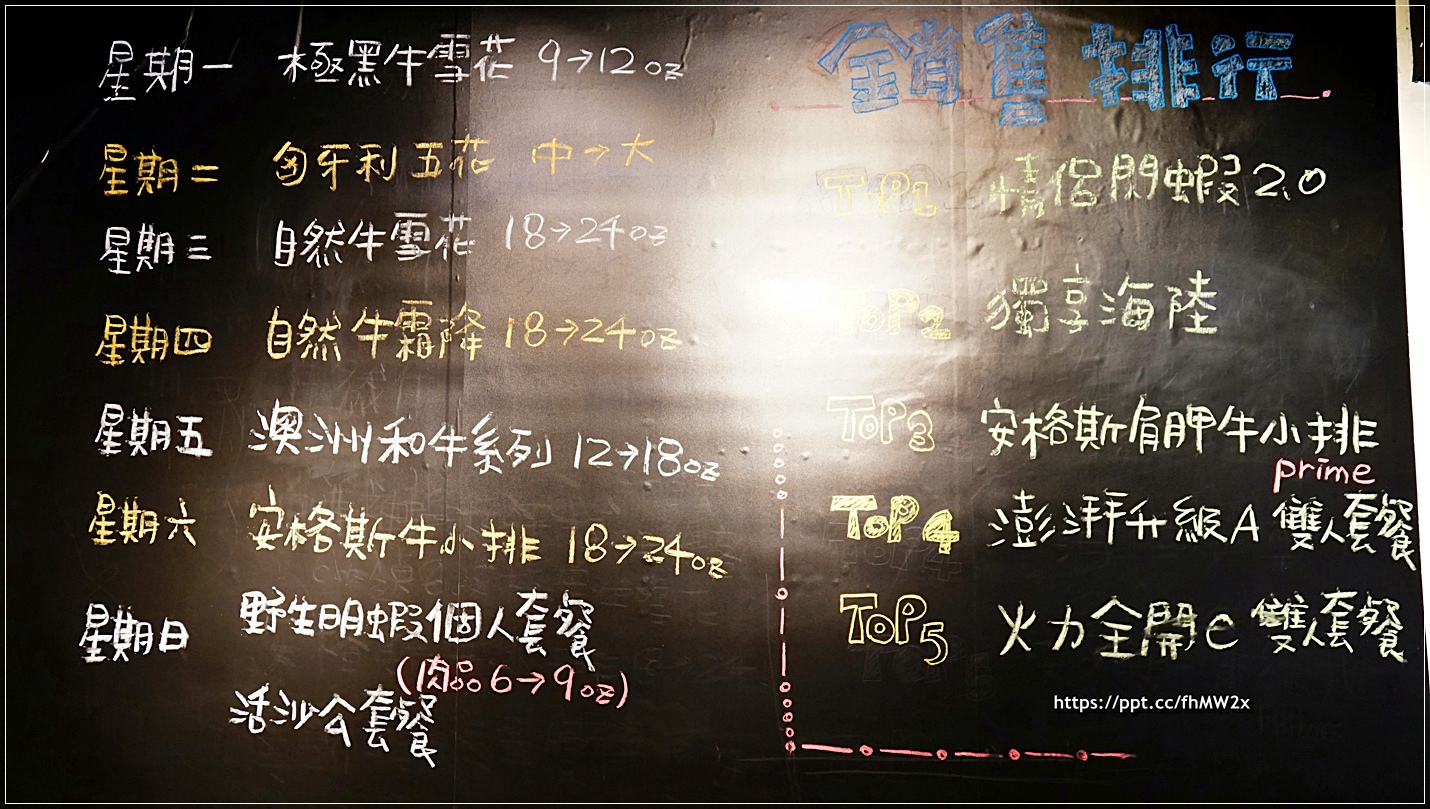 星期一 極黑牛雪花 9→12oz
星期二 匈牙利五花 中→大
星期三 自然牛雪花 18→24oz
星期四 自然牛霜降 18→24oz
星期五 澳洲和牛系列 12→18oz
星期六 安格斯牛小排 18→24oz
星期日 野生明蝦個人套餐
(肉品6→9oz)
活沙公套餐
銷售排行
TOP1 情侶閃蝦2.0
TOP2 獨享海陸
TOP3 安格斯肩胛牛小排
prime
TOP4 澎湃升級A雙人套餐
TOP5 火力全開C雙人套餐
https://ppt.cc/fhMW2x